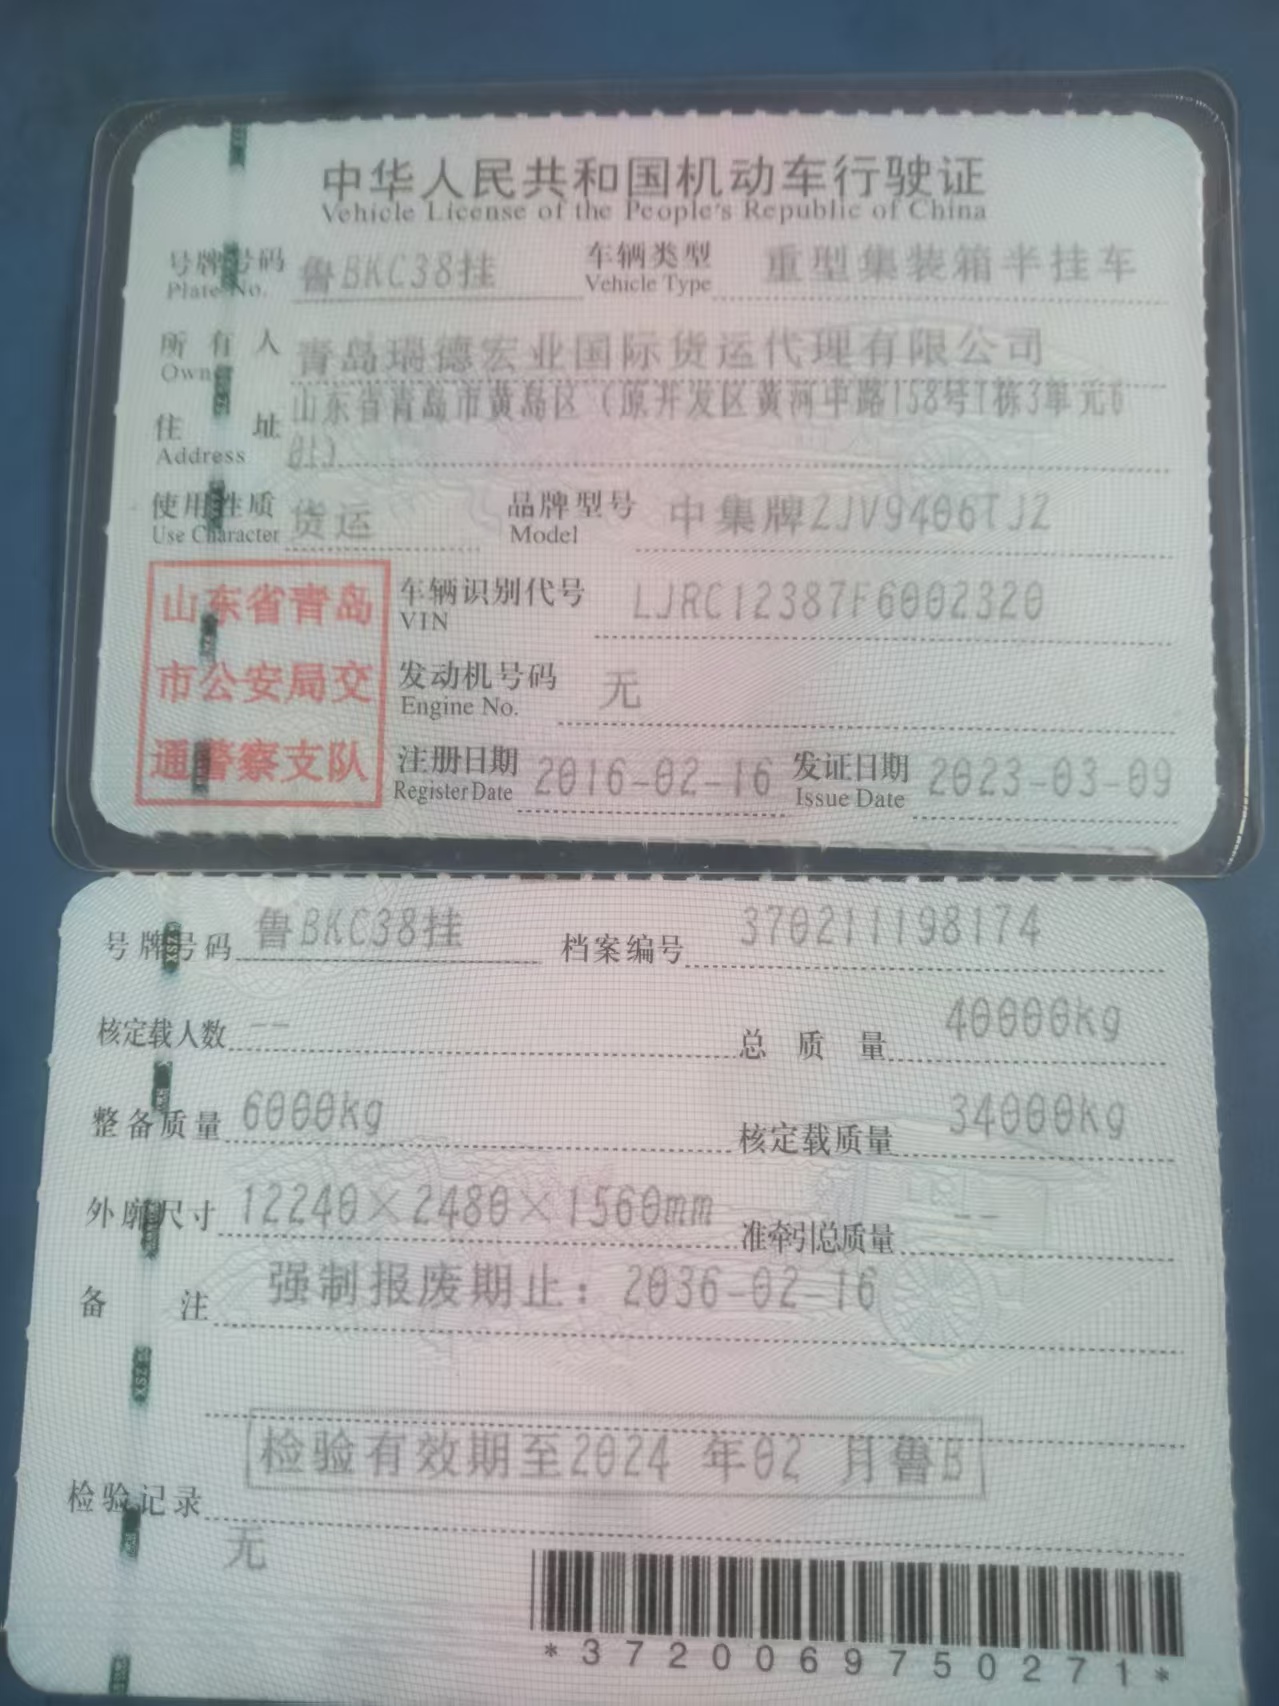 中华人民共和国机动车行驶证
Vehicle License of the People's Republic of China
号牌号码 鲁BKC38挂 车辆类型 重型集装箱半挂车
Plate No. Vehicle Type
所有人 青岛瑞德宏业国际货运代理有限公司
Owner
住址 山东省青岛市黄岛区(原开发区黄河中路158号1栋3单元6
Address 01)
使用性质 货运 品牌型号 中集牌ZJV9406TJZ
Use Character Model
山东省青岛
市公安局交
通警察支队
车辆识别代号 LJRC12387F6002320
VIN
发动机号码 无
Engine No.
注册日期 2016-02-16 发证日期 2023-03-09
Register Date Issue Date
号牌号码 鲁BKC38挂 档案编号 370211198174
核定载人数 -- 总质量 40000kg
整备质量 6000kg 核定载质量 34000kg
外廓尺寸 12240×2480×1560mm 准牵引总质量 --
备注 强制报废期止：2036-02-16
检验记录 检验有效期至2024年02月鲁B
无
*3720069750271*